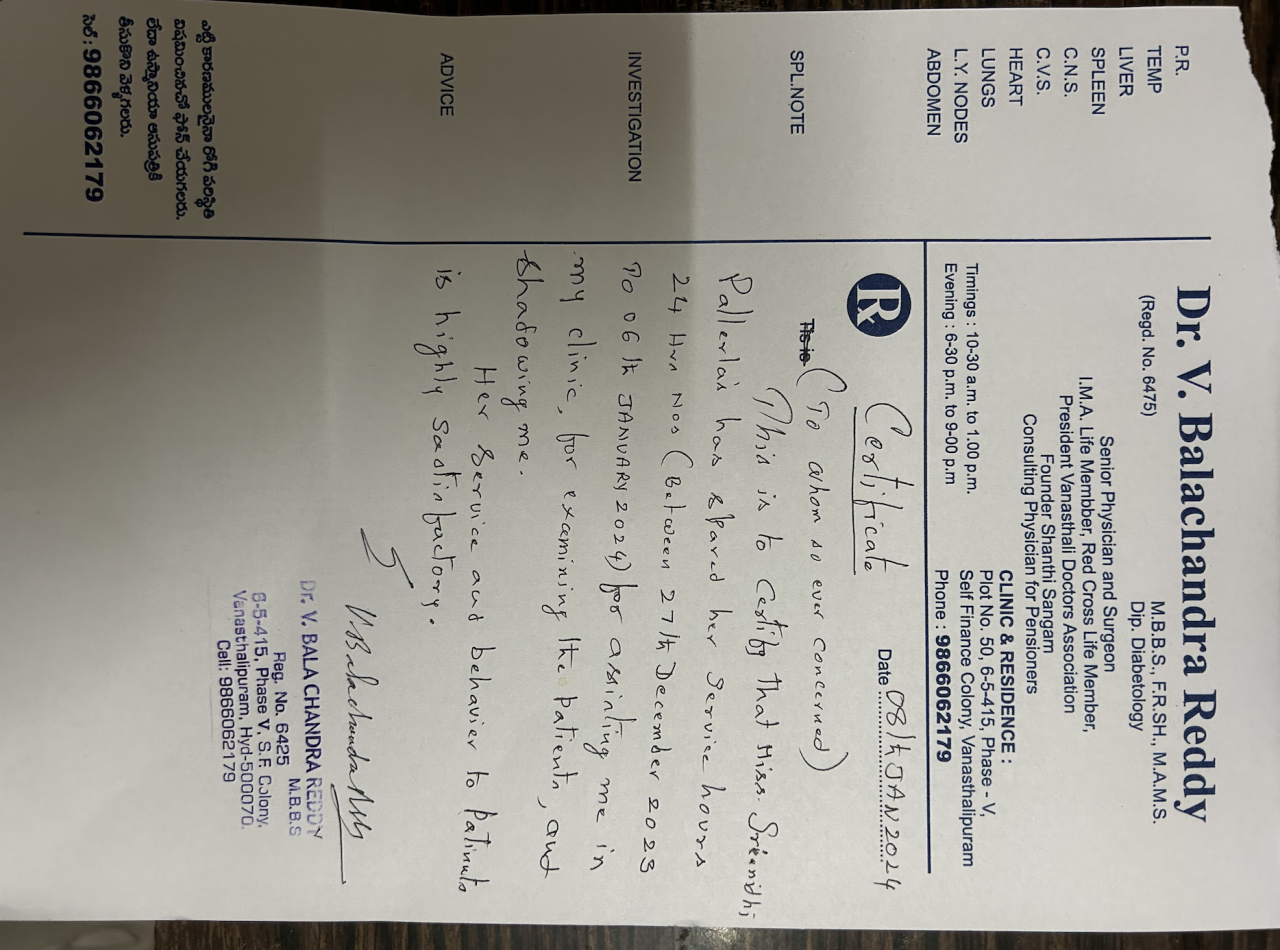 Dr. V. Balachandra Reddy
(Regd. No. 6475)
M.B.B.S., F.R.SH., M.A.M.S.
Dip. Diabetology
Senior Physician and Surgeon
I.M.A. Life Membber, Red Cross Life Member,
President Vanasthali Doctors Association
Founder Shanthi Sangam
Consulting Physician for Pensioners
Timings : 10-30 a.m. to 1.00 p.m.
Evening : 6-30 p.m. to 9-00 p.m
CLINIC & RESIDENCE :
Plot No. 50, 6-5-415, Phase - V,
Self Finance Colony, Vanasthalipuram
Phone : 9866062179
P.R.
TEMP
LIVER
SPLEEN
C.N.S.
C.V.S.
HEART
LUNGS
L.Y. NODES
ABDOMEN
SPL.NOTE
INVESTIGATION
ADVICE
ఎట్టి కారణములనైనా రోగి పరిస్థితి
విషమించినచో ఫోన్ చేయగలరు.
లేదా ఉస్మానియా ఆసుపత్రికి
తీసుకొని వెళ్ళగలరు.
సెల్ : 9866062179
Rx
Date 08th JAN 2024
Certificate
This is (To whom so ever concerned)
This is to Certify that Miss. Sreenidhi
Pallerlas has spared her service hours
24 Hrs Nos (Between 27th December 2023
To 06th JANUARY 2024) for assisting me in
my clinic, for examining the patients, and
shadowing me.
Her service and behavier to Patients
is highly sastisfactory.
V. Balachandra Reddy
Dr. V. BALA CHANDRA REDDY
M.B.B.S
Reg. No. 6425
6-5-415, Phase V, S.F. Colony,
Vanasthalipuram, Hyd-500070.
Cell: 9866062179